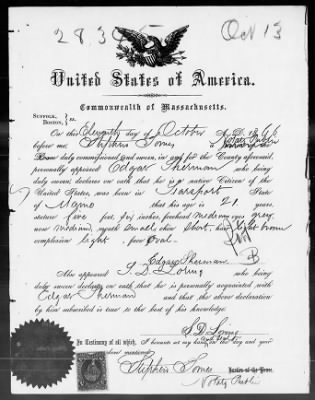 28365 Oct 13
United States of America.
Commonwealth of Massachusetts.
SUFFOLK,
BOSTON, } ss.
On this Eleventh day of October A. D. 186
before me, Stephen Somes a Notary Public
duly commissioned and sworn, in and for the County aforesaid,
personally appeared Edgar Sherman who being
duly sworn, declares on oath that he is a native Citizen of the
United States, was born in State
of that his age is 21 years,
stature five feet six inches, forehead medium eyes gray
nose medium, mouth small chin short, hair light brown
complexion light face oval.
Edgar Sherman
Also appeared S. D. who being
duly sworn declares on oath that he is personally acquainted with
Edgar Sherman and that the above declaration
by him subscribed is true to the best of his knowledge.
S. D.
In Testimony of which, I hereunto set my hand the day and year
above mentioned.
Stephen Somes Justice of the Peace.
Notary Public